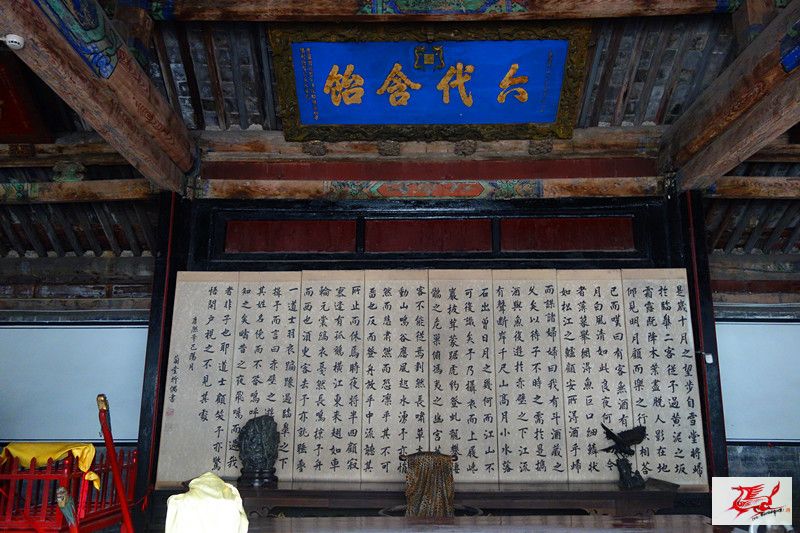 六代含飴
是歲十月之望步自雪堂將歸
於臨皋二客從予過黃泥之坂
霜露既降木葉盡脫人影在地
仰見明月顧而樂之行歌相答
已而嘆曰有客無酒有酒
月白風清如此良夜何
者薄暮舉網得魚巨口細鱗狀
如松江之鱸顧安所得酒乎歸
而謀諸婦婦曰我有斗酒藏之
久矣以待子不時之需於是攜
酒與魚復遊於赤壁之下江流
有聲斷岸千尺山高月小水落
石出曾日月之幾何而江山不
可復識矣予乃攝衣而上履巉
巖披蒙茸踞虎豹登虬龍攀棲
鶻之危巢俯馮夷之幽宮
客不能從焉劃然長嘯草木
動山鳴谷應風起水湧予亦悄
然而悲肅然而恐凜乎其不可
留也反而登舟放乎中流聽其
所止而休焉時夜將半四顧寂
寥適有孤鶴橫江東來翅如車
輪玄裳縞衣戛然長鳴掠予舟
而西也須臾客去予亦就睡夢
一道士羽衣蹁躚過臨皋之下
揖予而言曰赤壁之遊
其姓名俛而不答嗚呼
知之矣疇昔之夜飛鳴而過我
者非子也耶道士顧笑予亦驚
悟開戶視之不見其處